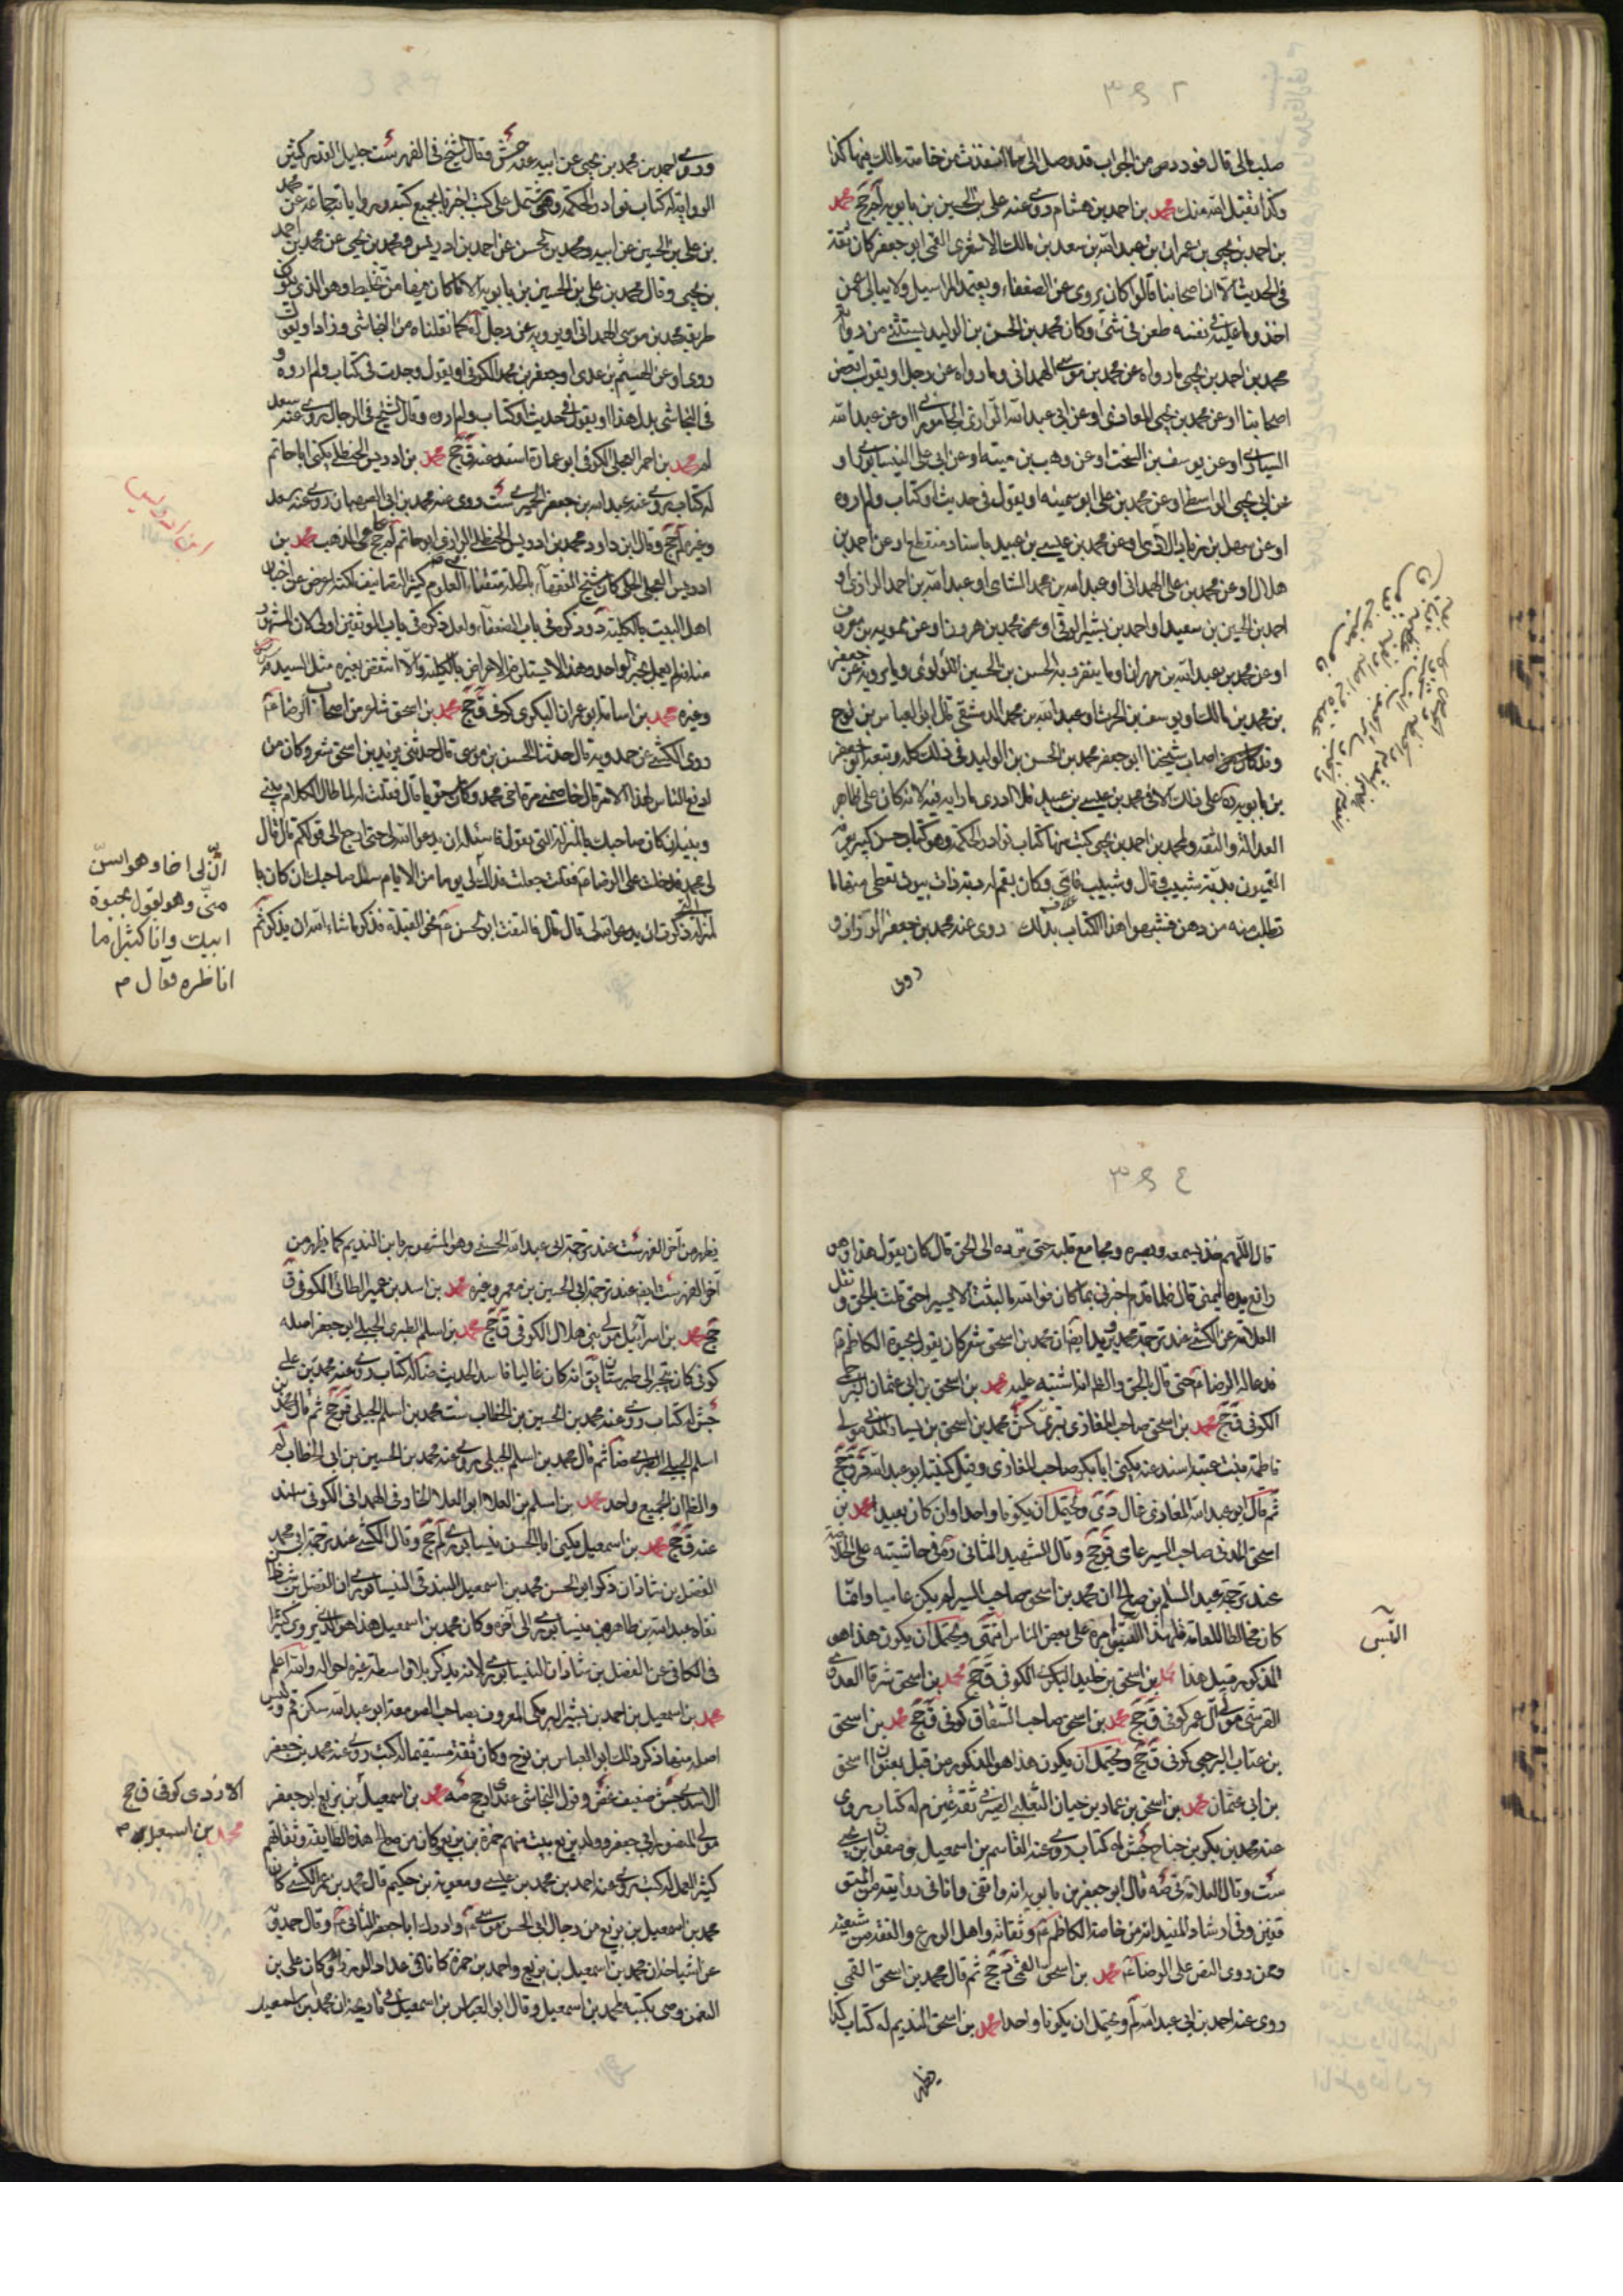 ٣٩٢
صلب مالی قال فورد من الجواب قد وصل الی ما انفذت من خاصة مالك فيها كذا
وكذا تقبل الله منك محمد بن احمد بن هشام روی عنه علی بن الحسين بن بابويه لم جخ محمد
بن احمد بن يحيی بن عمران بن عبد الله بن سعد بن مالك الاشعری القمی ابو جعفر كان ثقة
فی الحديث الا ان اصحابنا قالوا كان يروی عن الضعفاء و يعتمد المراسيل ولا يبالی عمن
اخذ وما عليه فی نفسه طعن فی شئ وكان محمد بن الحسن بن الوليد يستثنی من رواية
محمد بن احمد بن يحيی ما رواه عن محمد بن موسی الهمدانی وما رواه عن رجل او يقول بعض
اصحابنا او عن محمد بن يحيی المعاذی او عن ابی عبد الله الرازی الجامورانی او عن ابی عبد الله
السياری او عن يوسف بن السخت او عن وهب بن منبه او عن ابی علی النيسابوری او
عن ابی يحيی الواسطی او عن محمد بن علی ابو سمينه او يقول فی حديث او كتاب ولم اروه
او عن سهل بن زياد الآدمی او عن محمد بن عيسی بن عبيد باسناد منقطع او عن احمد بن
هلال او عن محمد بن علی الهمدانی او عبد الله بن محمد الشامی او عبد الله بن احمد الرازی او
احمد بن الحسين بن سعيد او احمد بن بشير الرقی او عن محمد بن هرون او عن ممويه بن معروف
او عن محمد بن عبد الله بن مهران او ما ينفرد به الحسن بن الحسين اللؤلؤی وما يرويه عن جعفر
بن محمد بن مالك او يوسف بن الحرث او عبد الله بن محمد الدمشقی قال ابو العباس بن نوح
وقد اصاب شيخنا ابو جعفر محمد بن الحسن بن الوليد فی ذلك كله وتبعه ابو جعفر
بن بابويه ره علی ذلك الا فی محمد بن عيسی بن عبيد فلا ادری ما رابه فيه لانه كان علی ظاهر
العدالة والثقة ولمحمد بن احمد بن يحيی كتب منها كتاب نوادر الحكمة وهو كتاب حسن كبير يعرفه
القميون بدبة شبيب قال وشبيب فامی كان بقم له دبة ذات بيوت يعطی منها ما
تطلب منه من دهن فشبهوا هذا الكتاب بذلك روی عنه محمد بن جعفر الرزاز و
روی
وروی احمد بن محمد بن يحيی عن ابيه عنه جش وقال الشيخ فی الفهرست جليل القدر كثير
الرواية له كتاب نوادر الحكمة وهو يشتمل علی كتب اخبرنا بجميع كتبه ورواياته جماعة عن محمد
بن علی بن الحسين عن ابيه ومحمد بن الحسن عن احمد بن ادريس ومحمد بن يحيی عن محمد بن احمد
بن يحيی وقال محمد بن علی بن الحسين بن بابويه الا ما كان فيها من تخليط وهو الذی يكون
طريقه محمد بن موسی الهمدانی او يرويه عن رجل الخ كما نقلناه من النجاشی وزاد او يقول
روی او عن الهيثم بن عدی او جعفر بن محمد الكوفی او يقول وجدت فی كتاب ولم اروه و
فی النجاشی بدل هذا او يقول فی حديث او كتاب ولم اروه وقال الشيخ فی الرجال روی عنه سعد
لم محمد بن احمر العجلی الكوفی ابو عمارة اسند عنه ق جخ محمد بن ادريس الحنظلی يكنی ابا حاتم
له كتاب روی عنه عبد الله بن جعفر الحميری ست وروی عنه محمد بن ابی الصهبان روی عنه سعد
وغيره لم جخ وقال ابن داود محمد بن ادريس الحنظلی الرازی ابو حاتم لم جخ عامی المذهب محمد بن
ادريس العجلی الحلی كان شيخ الفقهاء بالحلة متقنا فی العلوم كثير التصانيف لكنه اعرض عن اخبار
اهل البيت بالكلية د وذكره فی باب الضعفاء ولعل ذكره فی باب الموثقين اولی لان المشهور
منه انه لم يعمل بخبر الواحد وهذا لا يستلزم الاعراض بالكلية والا انتقض بغيره مثل السيد مرتضی
وغيره محمد بن اسامة ابو عمران البكری كوفی ق جخ محمد بن اسحق شعر من اصحاب الرضا ع
روی الكشی عن حمدويه قال حدثنا الحسن بن موسی قال حدثنی يزيد بن اسحق شعر وكان من
ادفع الناس لهذا الامر قال خاصمنی مرة اخی محمد وكان مستويا قال فقلت له لما طال الكلام بينی
وبينه ان كان صاحبك بالمنزلة التی تقول فاسئله ان يدعو الله لی حتی ارجع الی قولكم قال قال
لی محمد فدخلت علی الرضا ع فقلت جعلت فداك
لمنزلة ذكرت ان يدعو الله لی قال قال فالتفت ابو الحسن ع نحو القبلة فذكر ما شاء الله ان يذكر ثم
ابن ادريس
انّ لی اخا وهو اسنّ
منّی وهو يقول بحيوة
ابيك وانا كثيرا ما
اناظره فقال م
٣٩٤
قال اللهم خذ بسمعه وبصره ومجامع قلبه حتی ترده الی الحق قال كان يقول هذا وهو
رافع يده اليمنی قال فلما قدم اخبرنی بما كان فوالله ما لبثت الا يسيرا حتی قلت بالحق ونقل
العلامة عن الكشی عند ترجمة محمد ويزيد ايضا ان محمد بن اسحق شعر كان يقول بحيوة الكاظم ع
فدعا له الرضا ع حتی قال بالحق والظاهر انه اشتبه عليه محمد بن اسحق بن ابی عثمان البرجمی
الكوفی ق جخ محمد بن اسحق صاحب المغازی بتری كش محمد بن اسحق بن يسار المدنی مولی
فاطمة بنت عتبة اسند عنه يكنی ابا بكر صاحب المغازی وقيل كنيته ابو عبد الله ق جخ
ثم قال ابو عبد الله المغازی غال دی ويحتمل ان يكونا واحدا وان كان بعيدا محمد بن
اسحق المدنی صاحب السير عامی قر جخ وقال الشهيد الثانی ره فی حاشيته علی الخلاصة
عند ترجمة عبد السلم بن صالح ان محمد بن اسحق صاحب السير لم يكن عاميا وانما
كان مخالطا للعامة فلهذا التبس امره علی بعض الناس انتهی ويحتمل ان يكون هذا هو
المذكور قبيل هذا محمد بن اسحق بن خليد البكری الكوفی ق جخ محمد بن اسحق شرقا العدوی
القرشی مولی آل عمر كوفی ق جخ محمد بن اسحق صاحب الشقاق كوفی ق جخ محمد بن اسحق
بن عتاب البرجمی كوفی ق جخ ويحتمل ان يكون هذا هو المذكور من قبل بعنوان اسحق
بن ابی عثمان محمد بن اسحق بن عمار بن حيان التغلبی الصيرفی ثقة عين م له كتاب روی
عنه محمد بن بكر بن جناح جش له كتاب روی عنه القاسم بن اسمعيل وصفوان بن يحيی
ست وقال العلامة فی صه قال ابو جعفر بن بابويه انه واقفی وانا فی روايته من المتوقفين
وفی ارشاد المفيد انه من خاصة الكاظم ع وثقاته واهل الورع والفقه من شيعته
وممن روی النص علی الرضا ع محمد بن اسحق القمی لم جخ ثم قال محمد بن اسحق القمی
روی عنه احمد بن ابی عبد الله لم ويحتمل ان يكونا واحدا محمد بن اسحق النديم له كتاب كذا
يظهر
التبس
يظهر من آخر الفهرست عند ترجمة ابی عبد الله الحسنی وهو المشهور بابن النديم كما يظهر من
آخر الفهرست ايضا عند ترجمة ابی الحسين بن معمر وغيره محمد بن اسد بن عمير الطائی الكوفی ق
جخ محمد بن اسرائيل مولی بنی هلال الكوفی ق جخ محمد بن اسلم الطبری الجبلی ابو جعفر اصله
كوفی كان يتجر الی طبرستان يق انه كان غاليا فاسد الحديث ضا له كتاب روی عنه محمد بن علی
جش له كتاب روی عنه محمد بن الحسين بن ابی الخطاب ست محمد بن اسلم الجبلی قر جخ ثم قال محمد بن
اسلم الجبلی الطبری ضا ثم قال محمد بن اسلم الجبلی روی عنه محمد بن الحسين بن ابی الخطاب لم
والظ ان الجميع واحد محمد بن اسلم بن العلا ابو العلا الخارفی الهمدانی الكوفی اسند
عنه ق جخ محمد بن اسمعيل يكنی ابا الحسن نيسابوری لم جخ وقال الكشی عند ترجمة ابی محمد
الفضل بن شاذان ذكر ابو الحسن محمد بن اسمعيل البندقی النيسابوری ان الفضل بن شاذان
نفاه عبد الله بن طاهر من نيسابور الی آخره وكان محمد بن اسمعيل هذا هو الذی يروی كثيرا
فی الكافی عن الفضل بن شاذان النيسابوری لانه يذكر بلا واسطة غيره احواله والله اعلم
محمد بن اسمعيل بن احمد بن بشير البرمكی المعروف بصاحب الصومعة ابو عبد الله سكن قم وليس
اصله منها ذكر ذلك ابو العباس بن نوح وكان ثقة مستقيما له كتب روی عنه محمد بن جعفر
الاسدی جش ضعيف غض وقول النجاشی عندی ارجح صه محمد بن اسمعيل بن بزيع ابو جعفر
مولی المنصور ابی جعفر وولد بزيع بيت منهم حمزة بن بزيع كان من صالحی هذه الطايفة وثقاتهم
كثير العمل له كتب روی عنه احمد بن محمد بن عيسی ومعوية بن حكيم قال محمد بن عمر الكشی كان
محمد بن اسمعيل بن بزيع من رجال ابی الحسن موسی ع وادرك ابا جعفر الثانی ع وقال حمدويه
عن اشياخه ان محمد بن اسمعيل بن بزيع واحمد بن حمزة كانا فی عداد الوزراء وكان علی بن
النعمن وصی بكتبه لمحمد بن اسمعيل وقال ابو العباس بن اسمعيل فی تاريخه ان محمد بن اسمعيل
الازدی كوفی ق جخ
محمد بن اسمعيل م